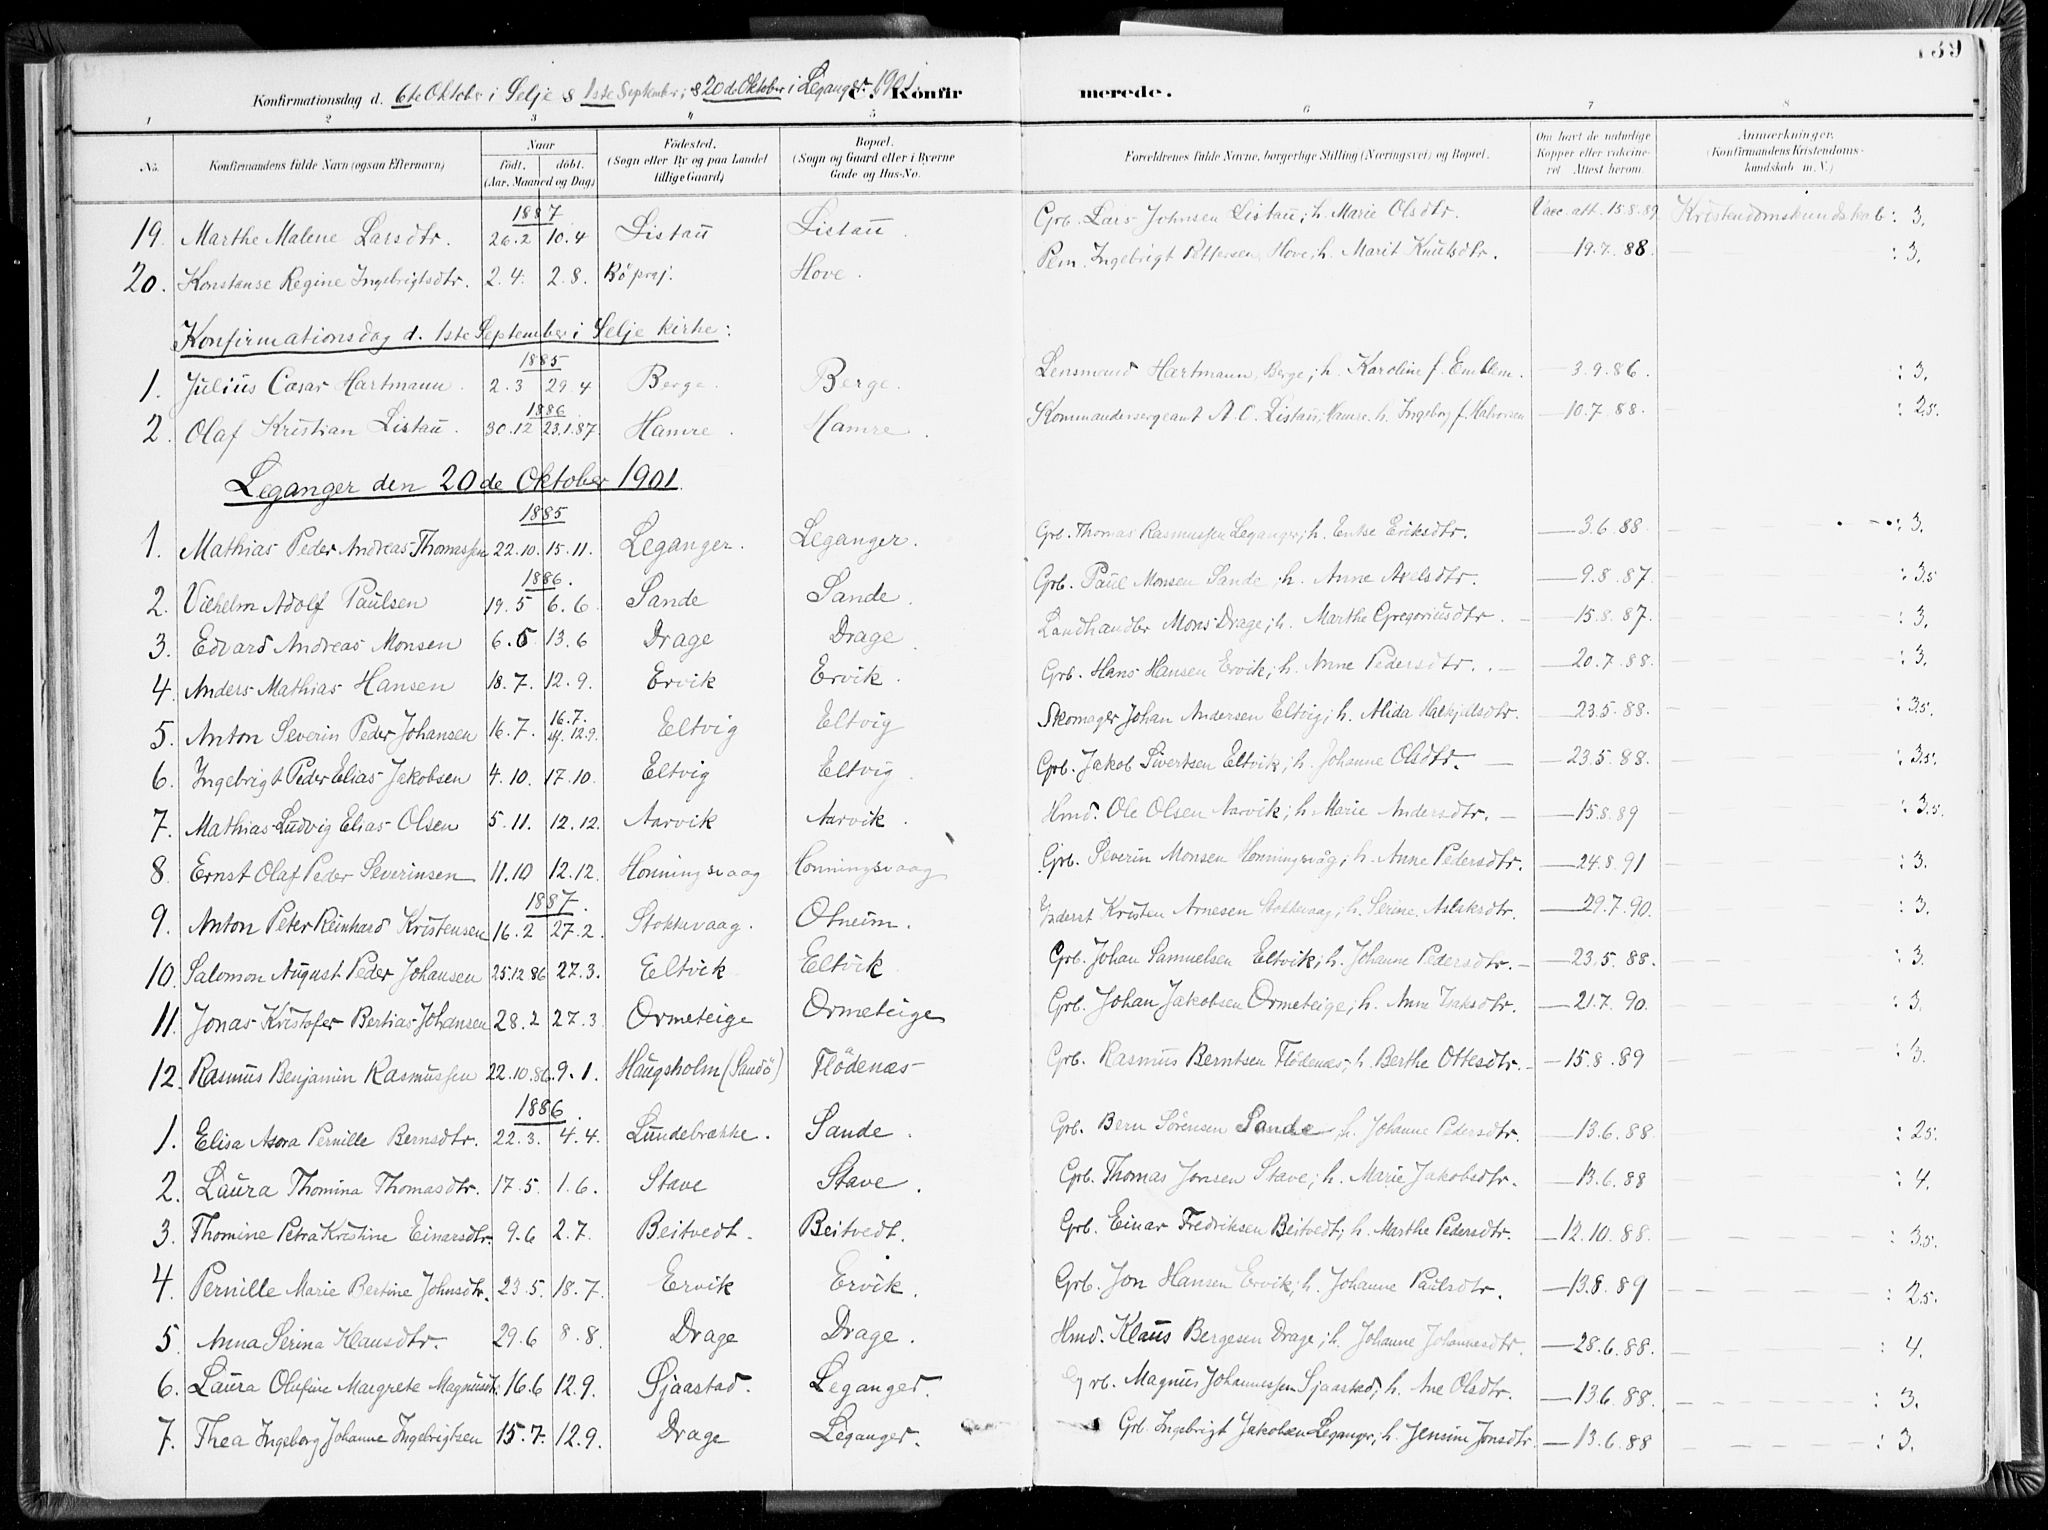 139
Konfirmationsdag d. 6te Oktober i Selje & 1ste September; & 20de Oktober i Leganger 1901. C. Konfir merede.
1 2 3 4 5 6 7 8
No. Konfirmandens fulde Navn (ogsaa Efternavn) Naar födt. döbt. (Aar, Maaned og Dag) Födested. (Sogn eller By og paa Landet tillige Gaard) Bopæl. (Sogn og Gaard eller i Byerne Gade og Hus-No. Forældrenes fulde Navne, borgerlige Stilling (Næringsvei) og Bopæl. Om havt de naturlige Kopper eller vakcineret. Attest herom. Anmærkninger. (Konfirmandens Kristendomskundskab m. V.)
1887
19. Marthe Malene Larsdtr. 26.2 10.4 Listau Listau. Grb. Lars Johnsen Listau; h. Marie Olsdtr. Vacc. att. 15.8.89 Kristendomskundskab: 3.
20. Konstanse Regine Ingebrigtsdtr. 2.4. 2.8. Bö prgj. Hove. Plm. Ingebrigt Pettersen Hove; h. Marit Knutsdtr. — 19.7.88 — : 3.
Konfirmationsdag d. 1ste September i Selje kirke:
1885
1. Julius Cæsar Hartmann. 2.3 29.4 Berge. Berge. Lensmand Hartmann, Berge; h. Karoline f. Emblem. — 3.9.86. : 3.
1886
2. Olaf Kristian Listau. 30.12 23.1.87. Hamre. Hamre. Kommandersergeant A.C. Listau, Hamre. h. Ingeborg f. Halvorsen — 10.7.88. : 2.5.
Leganger den 20de Oktober 1901.
1885
1. Mathias Peder Andreas Thomassen 22.10. 15.11. Leganger. Leganger. Grb. Thomas Rasmussen Leganger; h. Enkse Eriksdtr. — 3.6.88 — : 3.
1886.
2. Vilhelm Adolf Paulsen 19.5 6.6. Sande Sande. Grb. Paul Monsen Sande; h. Anne Axelsdtr. — 9.8.87. — : 3.5
3. Edvard Andreas Monsen 6.5 13.6 Drage Drage. Landhandler Mons Drage; h. Marthe Gregoriusdtr. — 15.8.87. — : 3.
4. Anders Mathias Hansen 18.7. 12.9. Ervik Ervik. Grb. Hans Hansen Ervik; h. Anne Pedersdtr. — 20.7.88. — : 3.
5. Anton Severin Peder Johansen 16.7. 16.7. 12.9. Eltvig Eltvig Skomager Johan Andersen Eltvig; h. Alida — 23.5.88. — : 3.5.
6. Ingebrigt Peder Elias Jakobsen 4.10. 17.10. Eltvig Eltvig. Grb. Jakob Sivertsen Eltvik; h. Johanne Olsdtr. — 23.5.88. — : 3.5.
7. Mathias Ludvig Elias Olsen 5.11. 12.12. Aarvik Aarvik. Hmd. Ole Olsen Aarvik; h. Marie Andersdtr. — 15.8.89 — : 3.5.
8. Ernst Olaf Peder Severinsen 11.10 12.12. Honningsvaag Honningsvaag Grb. Severin Monsen Honningsvåg; h. Anne Pedersdtr. — 24.8.91 — : 3.
1887.
9. Anton Peter Reinhard Kristensen 16.2 27.2. Stokkevaag. Otneim. Inderst Kristen Arnesen Stokkevaag; h. Serine Aslaksdtr. — 29.7.90. — : 3.
10. Salomon August Peder Johansen 25.12.86 27.3. Eltvik Eltvik Grb. Johan Samuelsen Eltvik; h. Johanne Pedersdtr. — 23.5.88. — : 3.
11. Jonas Kristofer Bertias Johansen 28.2 27.3 Ormeteige Ormeteige Grb. Johan Jakobsen Ormeteige; h. Anne Isaksdtr. — 21.7.90. — : 3.
12. Rasmus Benjamin Rasmussen 22.10.86. 9.1. Haugsholm (Sandö) Flödenæs Grb. Rasmus Berntsen Flödenæs; h. Berthe Ottesdtr. — 15.8.89 — : 3.
1886.
1. Elisa Asora Pernille Bernsdtr. 22.3. 4.4. Lundebrække. Sande. Grb. Bern Sörensen Sande; h. Johanne Pedersdtr. — 13.6.88. : 2.5.
2. Laura Thomina Thomasdtr. 17.5. 1.6. Stave Stave. Grb. Thomas Jonsen Stave; h. Marie Jakobsdtr. — 13.6.88 — : 4.
3. Thomine Petra Kristine Einarsdtr. 9.6 2.7. Beitvedt. Beitvedt. Grb. Einar Fredriksen Beitvedt; h. Marthe Pedersdtr. — 12.10.88. — : 3.5.
4. Pernille Marie Bertine Johnsdtr. 23.5. 18.7. Ervik Ervik. Grb. Jon Hansen Ervik; h. Johanne Paulsdtr. — 13.8.89 — : 2.5.
5. Anna Serina Klausdtr. 29.6 8.8. Drage Drage. Hmd. Klaus Bergesen Drage; h. Johanne Johannesdtr. — 28.6.88. — : 4.
6. Laura Olufine Margrete Magnusdtr. 16.6 12.9. Sjaastad. Leganger. Grb. Magnus Johannessen Sjaastad; h. Ane Olsdtr. — 13.6.88. — : 3.
7. Thea Ingeborg Johanne Ingebrigtsen 15.7. 12.9. Drage Leganger. Grb. Ingebrigt Jakobsen Leganger; h. Jensine Jonsdtr. — 13.6.88 — : 3.